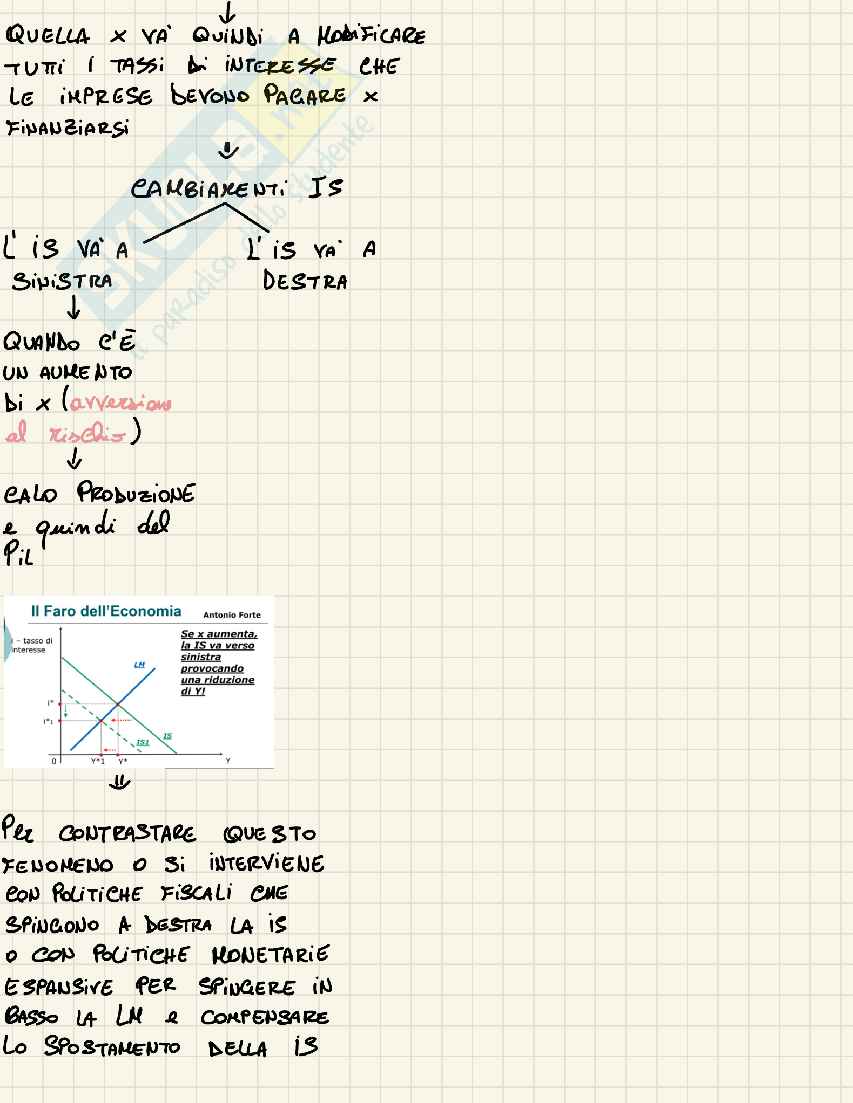 QUELLA x VA' QUINDI A MODIFICARE
TUTTI I TASSI DI INTERESSE CHE
LE IMPRESE DEVONO PAGARE x
FINANZIARSI
CAMBIAMENTI IS
L'IS VA' A
SINISTRA
L'IS VA' A
DESTRA
QUANDO C'È
UN AUMENTO
DI x (avversione
al rischio)
CALO PRODUZIONE
e quindi del
PIL
Il Faro dell'Economia
Antonio Forte
i – tasso di
interesse
Se x aumenta,
la IS va verso
sinistra
provocando
una riduzione
di Y!
LM
i*
i*1
IS
IS1
0
Y*1
Y*
Y
Per CONTRASTARE QUESTO
FENOMENO O SI INTERVIENE
CON POLITICHE FISCALI CHE
SPINGONO A DESTRA LA IS
O CON POLITICHE MONETARIE
ESPANSIVE PER SPINGERE IN
BASSO LA LM e COMPENSARE
LO SPOSTAMENTO DELLA IS
SKUOLA.net
il paradiso dello studente